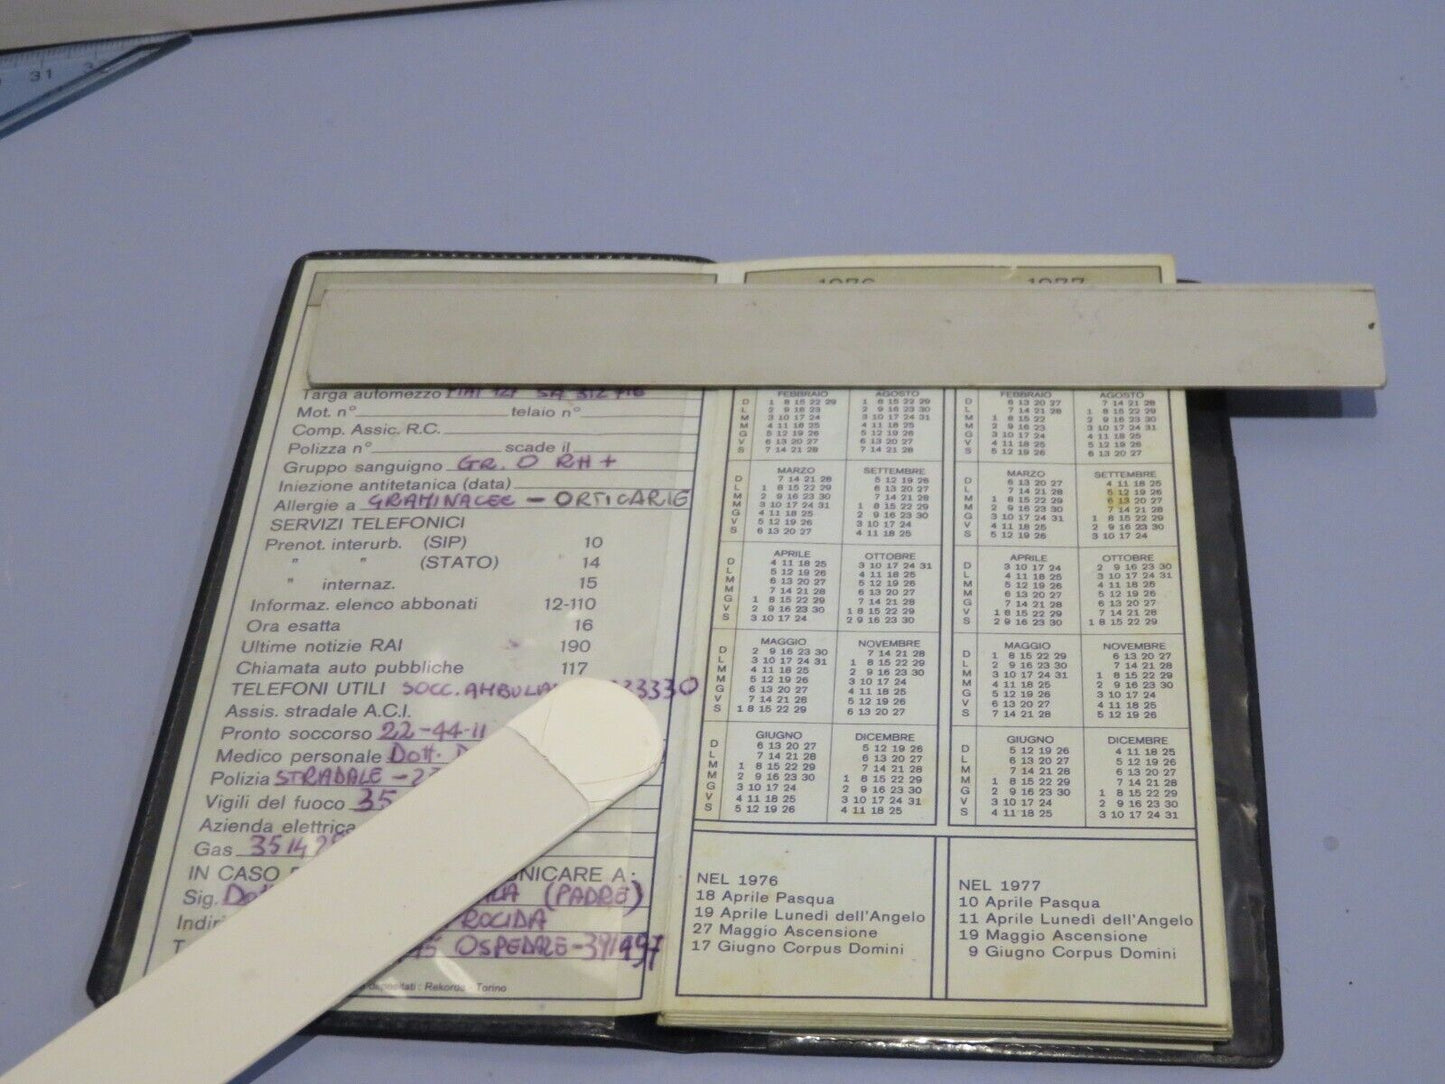 31
1976 1977
Targa automezzo FIAT 127 SA 312716
Mot. n° telaio n°
Comp. Assic. R.C.
Polizza n° scade il
Gruppo sanguigno GR. O RH +
Iniezione antitetanica (data)
Allergie a GRAMINACEE - ORTICARIE
SERVIZI TELEFONICI
Prenot. interurb. (SIP) 10
" " (STATO) 14
" internaz. 15
Informaz. elenco abbonati 12-110
Ora esatta 16
Ultime notizie RAI 190
Chiamata auto pubbliche 117
TELEFONI UTILI SOCC. 33330
Assis. stradale A.C.I.
Pronto soccorso 22-44-11
Medico personale Dott.
Polizia STRADALE -
Vigili del fuoco 35
Azienda elettrica
Gas
IN CASO NICARE A:
Sig. (PADRE)
Indiri ROCIDA
OSPEDALE - 391997
depositati: Rekords - Torino
FEBBRAIO AGOSTO
D 1 8 15 22 29 1 8 15 22 29
L 2 9 16 23 2 9 16 23 30
M 3 10 17 24 3 10 17 24 31
M 4 11 18 25 4 11 18 25
G 5 12 19 26 5 12 19 26
V 6 13 20 27 6 13 20 27
S 7 14 21 28 7 14 21 28
MARZO SETTEMBRE
D 7 14 21 28 5 12 19 26
L 1 8 15 22 29 6 13 20 27
M 2 9 16 23 30 7 14 21 28
M 3 10 17 24 31 1 8 15 22 29
G 4 11 18 25 2 9 16 23 30
V 5 12 19 26 3 10 17 24
S 6 13 20 27 4 11 18 25
APRILE OTTOBRE
D 4 11 18 25 3 10 17 24 31
L 5 12 19 26 4 11 18 25
M 6 13 20 27 5 12 19 26
M 7 14 21 28 6 13 20 27
G 1 8 15 22 29 7 14 21 28
V 2 9 16 23 30 1 8 15 22 29
S 3 10 17 24 2 9 16 23 30
MAGGIO NOVEMBRE
D 2 9 16 23 30 7 14 21 28
L 3 10 17 24 31 1 8 15 22 29
M 4 11 18 25 2 9 16 23 30
M 5 12 19 26 3 10 17 24
G 6 13 20 27 4 11 18 25
V 7 14 21 28 5 12 19 26
S 1 8 15 22 29 6 13 20 27
GIUGNO DICEMBRE
D 6 13 20 27 5 12 19 26
L 7 14 21 28 6 13 20 27
M 1 8 15 22 29 7 14 21 28
M 2 9 16 23 30 1 8 15 22 29
G 3 10 17 24 2 9 16 23 30
V 4 11 18 25 3 10 17 24 31
S 5 12 19 26 4 11 18 25
NEL 1976
18 Aprile Pasqua
19 Aprile Lunedì dell'Angelo
27 Maggio Ascensione
17 Giugno Corpus Domini
FEBBRAIO AGOSTO
D 6 13 20 27 7 14 21 28
L 7 14 21 28 1 8 15 22 29
M 1 8 15 22 2 9 16 23 30
M 2 9 16 23 3 10 17 24 31
G 3 10 17 24 4 11 18 25
V 4 11 18 25 5 12 19 26
S 5 12 19 26 6 13 20 27
MARZO SETTEMBRE
D 6 13 20 27 4 11 18 25
L 7 14 21 28 5 12 19 26
M 1 8 15 22 29 6 13 20 27
M 2 9 16 23 30 7 14 21 28
G 3 10 17 24 31 1 8 15 22 29
V 4 11 18 25 2 9 16 23 30
S 5 12 19 26 3 10 17 24
APRILE OTTOBRE
D 3 10 17 24 2 9 16 23 30
L 4 11 18 25 3 10 17 24 31
M 5 12 19 26 4 11 18 25
M 6 13 20 27 5 12 19 26
G 7 14 21 28 6 13 20 27
V 1 8 15 22 29 7 14 21 28
S 2 9 16 23 30 1 8 15 22 29
MAGGIO NOVEMBRE
D 1 8 15 22 29 6 13 20 27
L 2 9 16 23 30 7 14 21 28
M 3 10 17 24 31 1 8 15 22 29
M 4 11 18 25 2 9 16 23 30
G 5 12 19 26 3 10 17 24
V 6 13 20 27 4 11 18 25
S 7 14 21 28 5 12 19 26
GIUGNO DICEMBRE
D 5 12 19 26 4 11 18 25
L 6 13 20 27 5 12 19 26
M 7 14 21 28 6 13 20 27
M 1 8 15 22 29 7 14 21 28
G 2 9 16 23 30 1 8 15 22 29
V 3 10 17 24 2 9 16 23 30
S 4 11 18 25 3 10 17 24 31
NEL 1977
10 Aprile Pasqua
11 Aprile Lunedì dell'Angelo
19 Maggio Ascensione
9 Giugno Corpus Domini